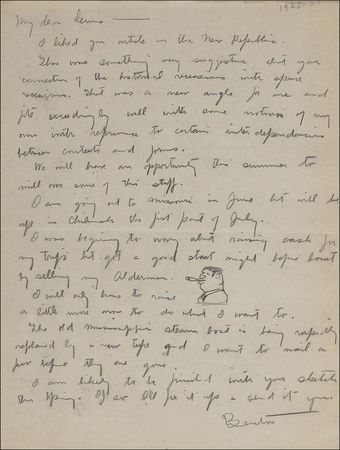 1925-2
My dear Lewis —
I liked your article in the New Republic.
There was something very suggestive about your
connection of the historical recessions with space
recessions. That was a new angle for me and
fits exceedingly well with some notions of my
own with reference to certain inter dependencies
between contents and forms.
We will have an opportunity this summer to
mill over some of this stuff.
I am going out to Missouri in June but will be
up in Chilmark the first part of July.
I was beginning to worry about raising cash for
my trips but got a good start night before last
by selling my Alderman.
I will only have to raise
a little more now to do what I want to.
The old Mississippi steam boat is being rapidly
replaced by a new type and I want to nail a
few before they are gone.
I am likely to be finish with your sketch
this Spring. If so I'll fix it up & send it to you.
Benton